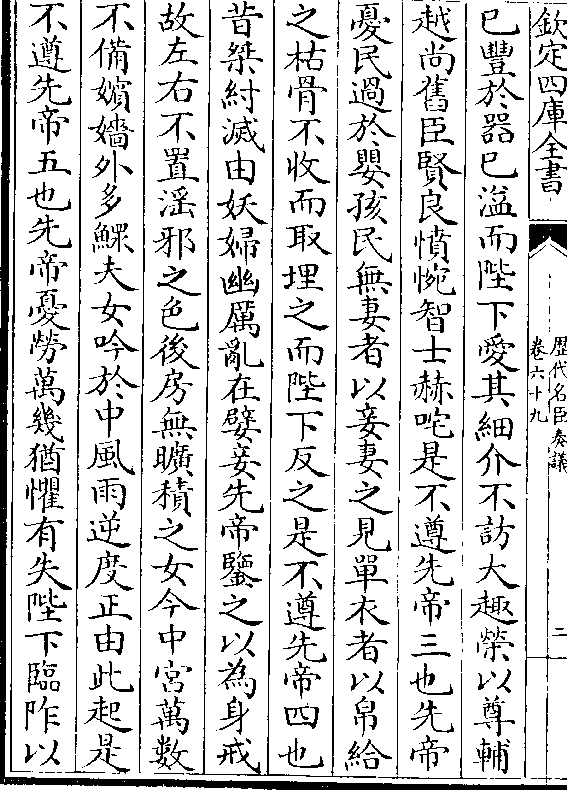 欽定四庫全書
歷代名臣奏議
卷六十九
二
已豐於器已溢而陛下愛其細介不訪大趣榮以尊輔
越尚舊臣賢良憤惋智士赫咤是不遵先帝三也先帝
憂民過於嬰孩民無妻者以妾妻之見單衣者以帛給
之枯骨不收而取埋之而陛下反之是不遵先帝四也
昔桀紂滅由妖婦幽厲亂在嬖妾先帝鑒之以為身戒
故左右不置淫邪之色後房無曠積之女今中宮萬數
不備嬪嬙外多鰥夫女吟於中風雨逆度正由此起是
不遵先帝五也先帝憂勞萬幾猶懼有失陛下臨阼以